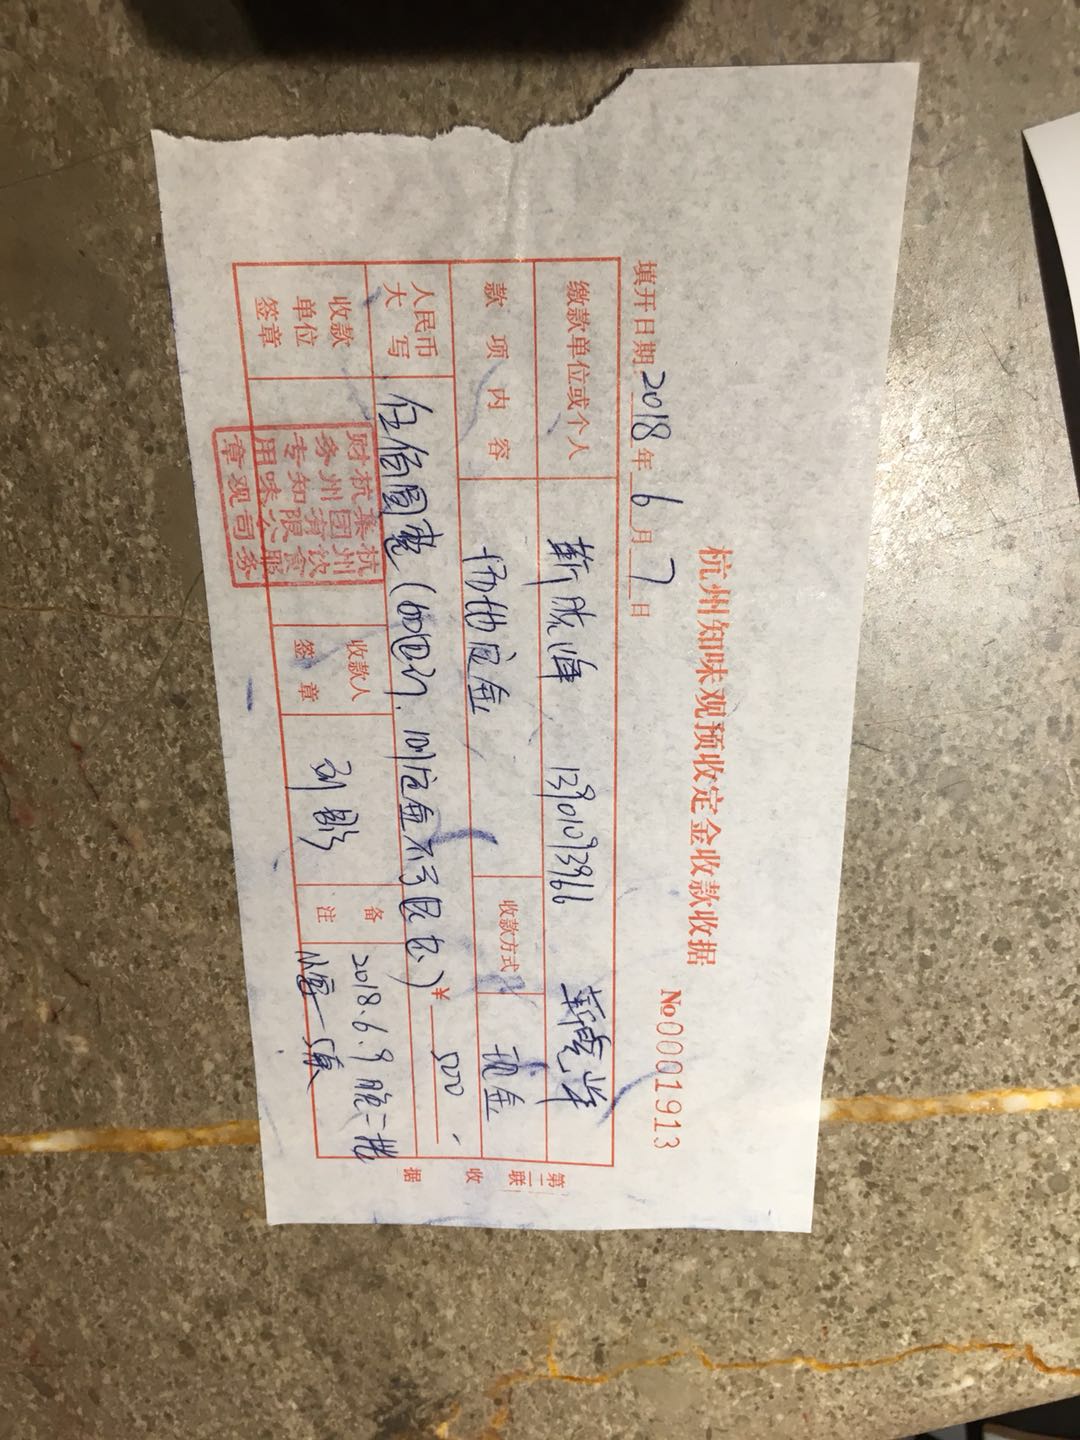 杭州知味观预收定金收款收据
No 00001913
填开日期 2018 年 6 月 7 日
缴款单位或个人 靳 峰 13901093966
款项内容 场地定金 收款方式 现金
人民币大写 伍佰圆整(如取消,则定金不予退还) ¥ 500
收款单位签章 收款人签章 备注 2018.6.9 晚二楼
杭州饮食服务集团有限公司杭州知味观财务专用章
第二联 收据